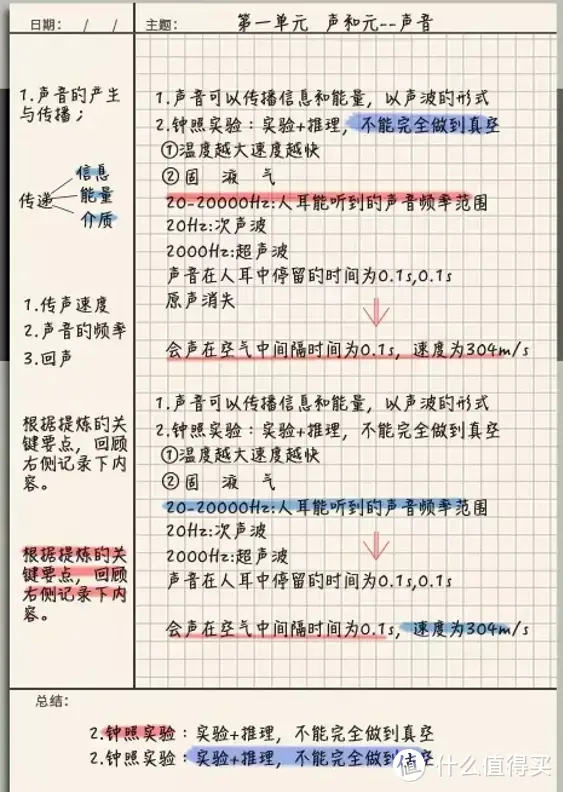 日期： / / 主题： 第一单元 声和元--声音
1.声音的产生
与传播；
传递
信息
能量
介质
1.传声速度
2.声音的频率
3.回声
根据提炼的关
键要点，回顾
右侧记录下内
容。
根据提炼的关
键要点，回顾
右侧记录下内
容。
1.声音可以传播信息和能量，以声波的形式
2.钟照实验：实验+推理，不能完全做到真空
①温度越大速度越快
②固 液 气
20-20000Hz:人耳能听到的声音频率范围
20Hz:次声波
2000Hz:超声波
声音在人耳中停留的时间为0.1s,0.1s
原声消失
会声在空气中间隔时间为0.1s，速度为304m/s
1.声音可以传播信息和能量，以声波的形式
2.钟照实验：实验+推理，不能完全做到真空
①温度越大速度越快
②固 液 气
20-20000Hz:人耳能听到的声音频率范围
20Hz:次声波
2000Hz:超声波
声音在人耳中停留的时间为0.1s,0.1s
会声在空气中间隔时间为0.1s，速度为304m/s
总结：
2.钟照实验：实验+推理，不能完全做到真空
2.钟照实验：实验+推理，不能完全做到空
值 什么值得买